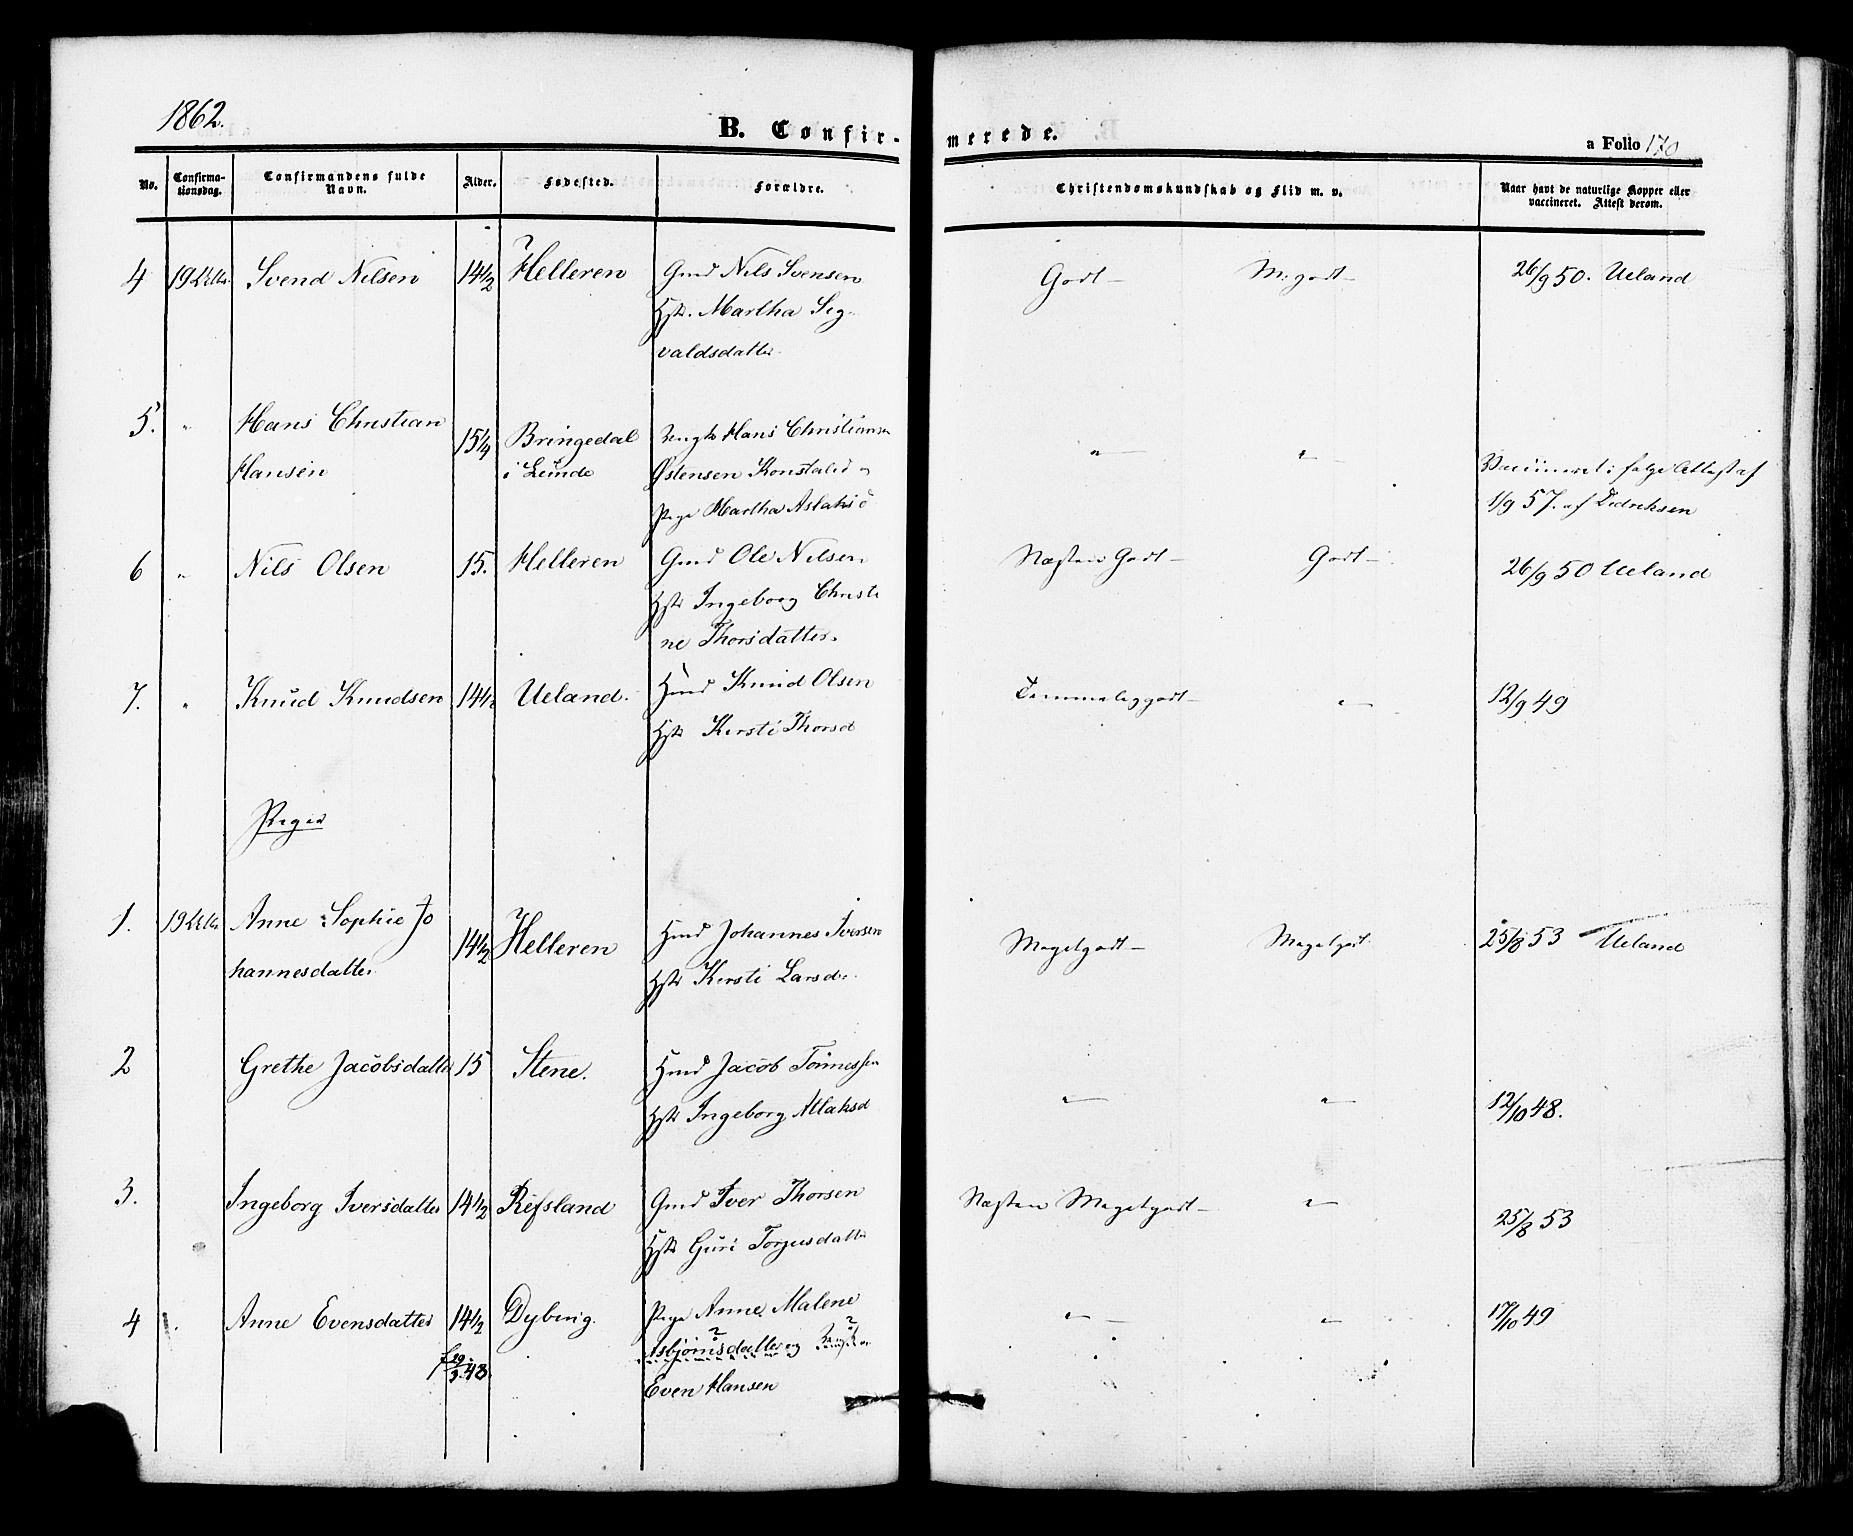 1862.
B. Confir-
merede.
a Folio 170
No.
Confirma-
tionsdag.
Confirmandens fulde
Navn.
Alder.
Fødested.
Forældre.
Christendomskundskab og Flid m. v.
Naar havt de naturlige Kopper eller
vaccineret. Attest derom.
4 19 Svend Nilsen 14½ Helleren Gmd Nils Svensen Godt — M. godt — 26/9 50. Ueland
Hst. Martha Sig-
valdsdatter
5. " Hans Christian 15¼ Bringedal Hans Christian
Hansen i Lunde Østensen " — " — Vaccineret i følge Attest af
Pige Martha Aslaksd 1/9 57. af Didriksen
6 " Nils Olsen 15. Helleren Gmd Ole Nilsen Næsten Godt — Godt — 26/9 50 Ueland
Hst Ingeborg Christi
ne Thorsdatter.
7. " Knud Knudsen 14½ Ueland. Hmd Knud Olsen Temmeliggodt — " — 12/9 49
Hst Kirsti Thorsd
Piger
1. 19 Anne Sophie Jo 14½ Helleren Hmd Johannes Iversen Megetgodt — Megetgodt 25/8 53 Ueland
hannesdatter Hst Kirsti Larsd.
2 Grethe Jacobsdatter 15 Stene. Hmd Jacob Tønnessen
Hst Ingeborg Atlaksd " — " — 12/10 48.
3. Ingeborg Iversdatter 14½ Refsland Gmd Iver Thorsen Næsten Megetgodt — " —
Hst Guri Torjusdatter 25/8 53
4 " Anne Evensdatter 14½ Dybing. Pige Anne Malene " — " — 17/10 49
f 29/3 48. Asbjørnsdatter og
Even Hansen